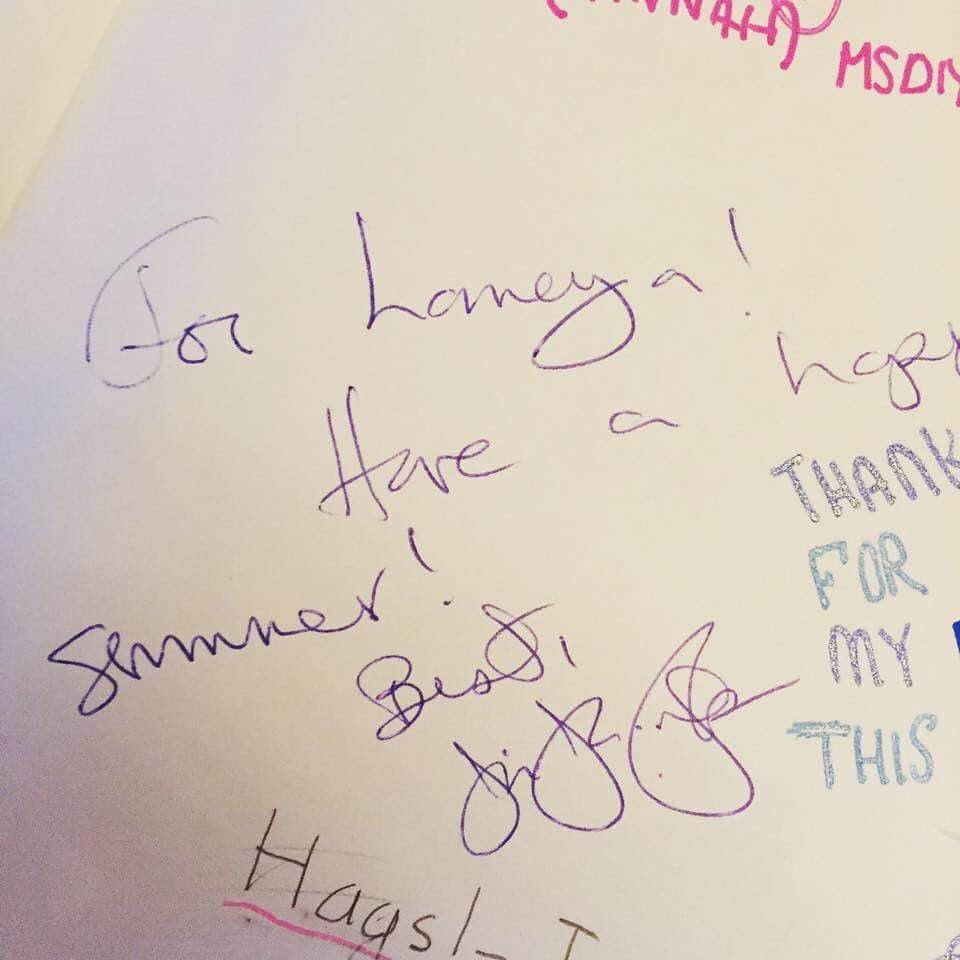 MSDM
For Lameya!
Have a happy
summer!
Best,
THANK
FOR
MY
THIS
Hags!- I